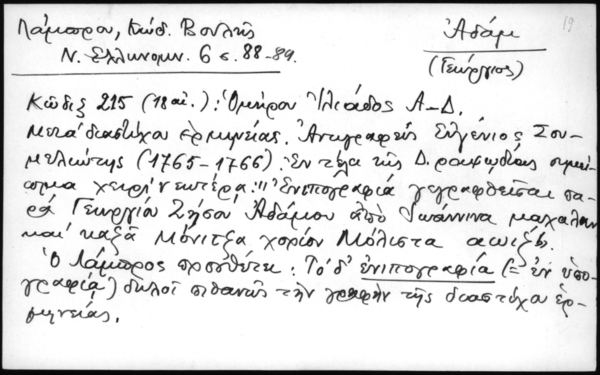 Λάμπρου, Κώδ. Βουλῆς
Ν. Ἑλληνομν. 6 σ. 88-89.
Ἀδάμ
(Γεώργιος)
19
Κῶδιξ 215 (18 αἰ.): Ὁμήρου Ἰλιάδος Α-Δ.
μετὰ διαστίχου ἑρμηνείας. Ἀντιγραφεὺς Εὐγένιος Σου-
μελιώτης (1765-1766). Ἐν τέλει τῆς Δ. ραψῳδίας σημεί-
ωμα χειρὶ νεωτέρᾳ: "Ἐνιπογραφία γεγραφθεῖσαι πα-
ρὰ Γεωργίου Ζήσου Ἀδάμου ἀπὸ Ἰωάννινα μαχαλαν
καὶ καζᾶ Κόνιτζα χορίον Μόλιστα αωιξβ.
Ὁ Λάμπρος προσθέτει: Τὸ δ' ἐνιπογραφία (= ἐν ὑπο-
γραφίᾳ) δηλοῖ πιθανῶς τὴν γραφὴν τῆς διαστίχου ἑρ-
μηνείας.